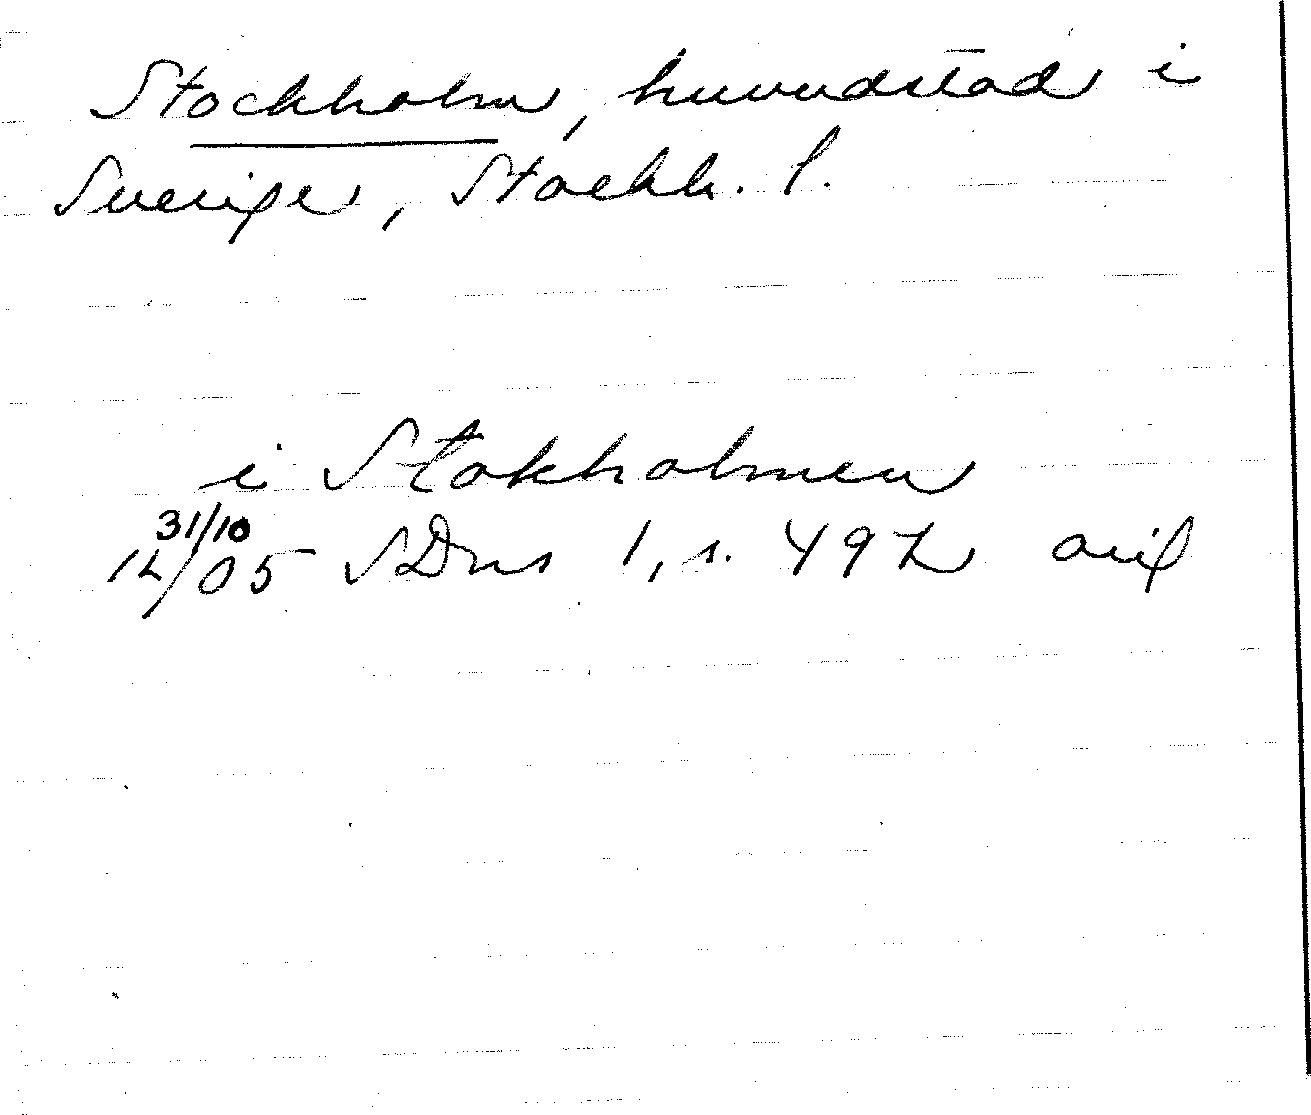 Stockholm, huvudstad i
Sverige, Stockh. l.
i Stokholmen
31/10
1405 SDns 1, s. 492 orig